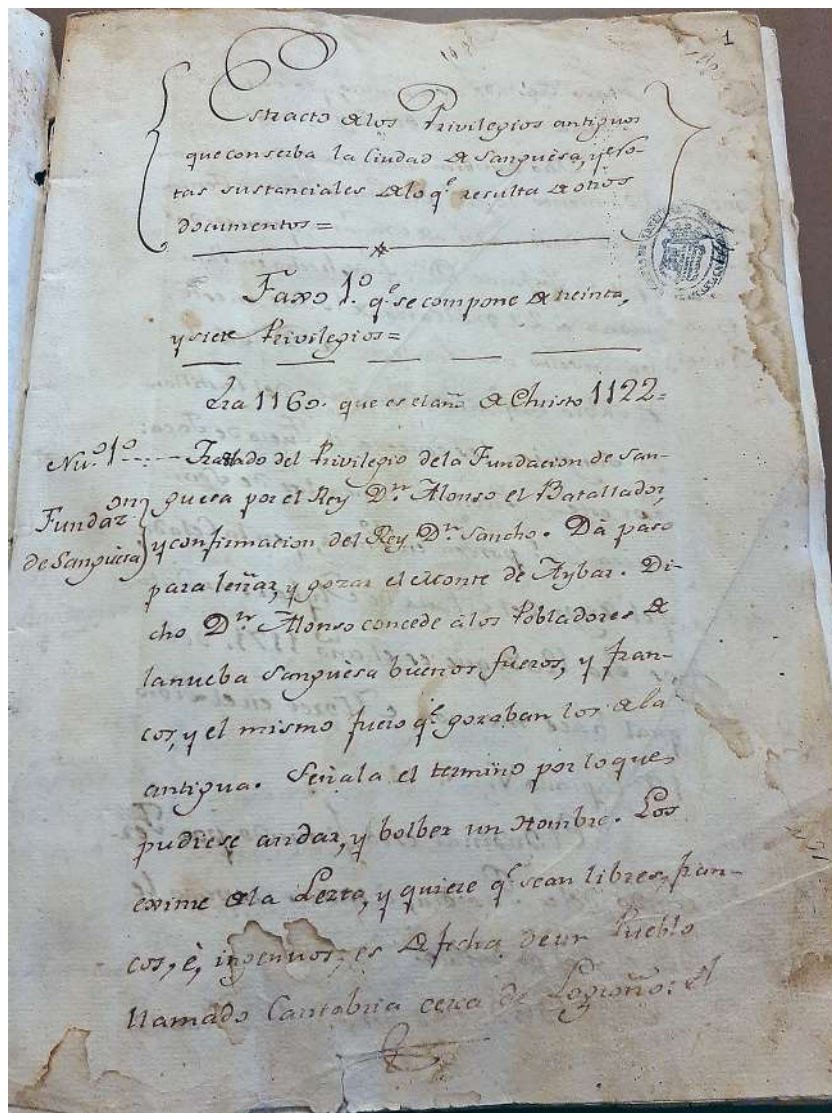 1
Estracto de los Privilegios antiguos
que conserba la Ciudad de Sanguesa, y no-
tas sustanciales de lo q.e resulta de otros
documentos =
Faxo 1.o q.e se compone de treinta,
y siete Privilegios =
Era 1160. que es el año de Christo 1122 =
Nu.o 1o ---- Traslado del Privilegio de la Fundacion de San-
Fundaz.on
de Sangüesa
guesa por el Rey D.n Alonso el Batallador,
y confirmacion del Rey D.n Sancho. Dà paso
para leñar, y gozar el Monte de Aybar. Di-
cho D.n Alonso concede à los Pobladores de
la nueba Sanguesa buenos fueros, y fran-
cos, y el mismo fuero q.e gozaban los de la
antigua. Señala el termino por lo que
pudiese andar, y bolber un Hombre. Los
exime de la Lezta, y quiere q.e sean libres, fran-
cos, è, ingenuos: es de fecha de un Pueblo
llamado Cantabria cerca de Logroño: el